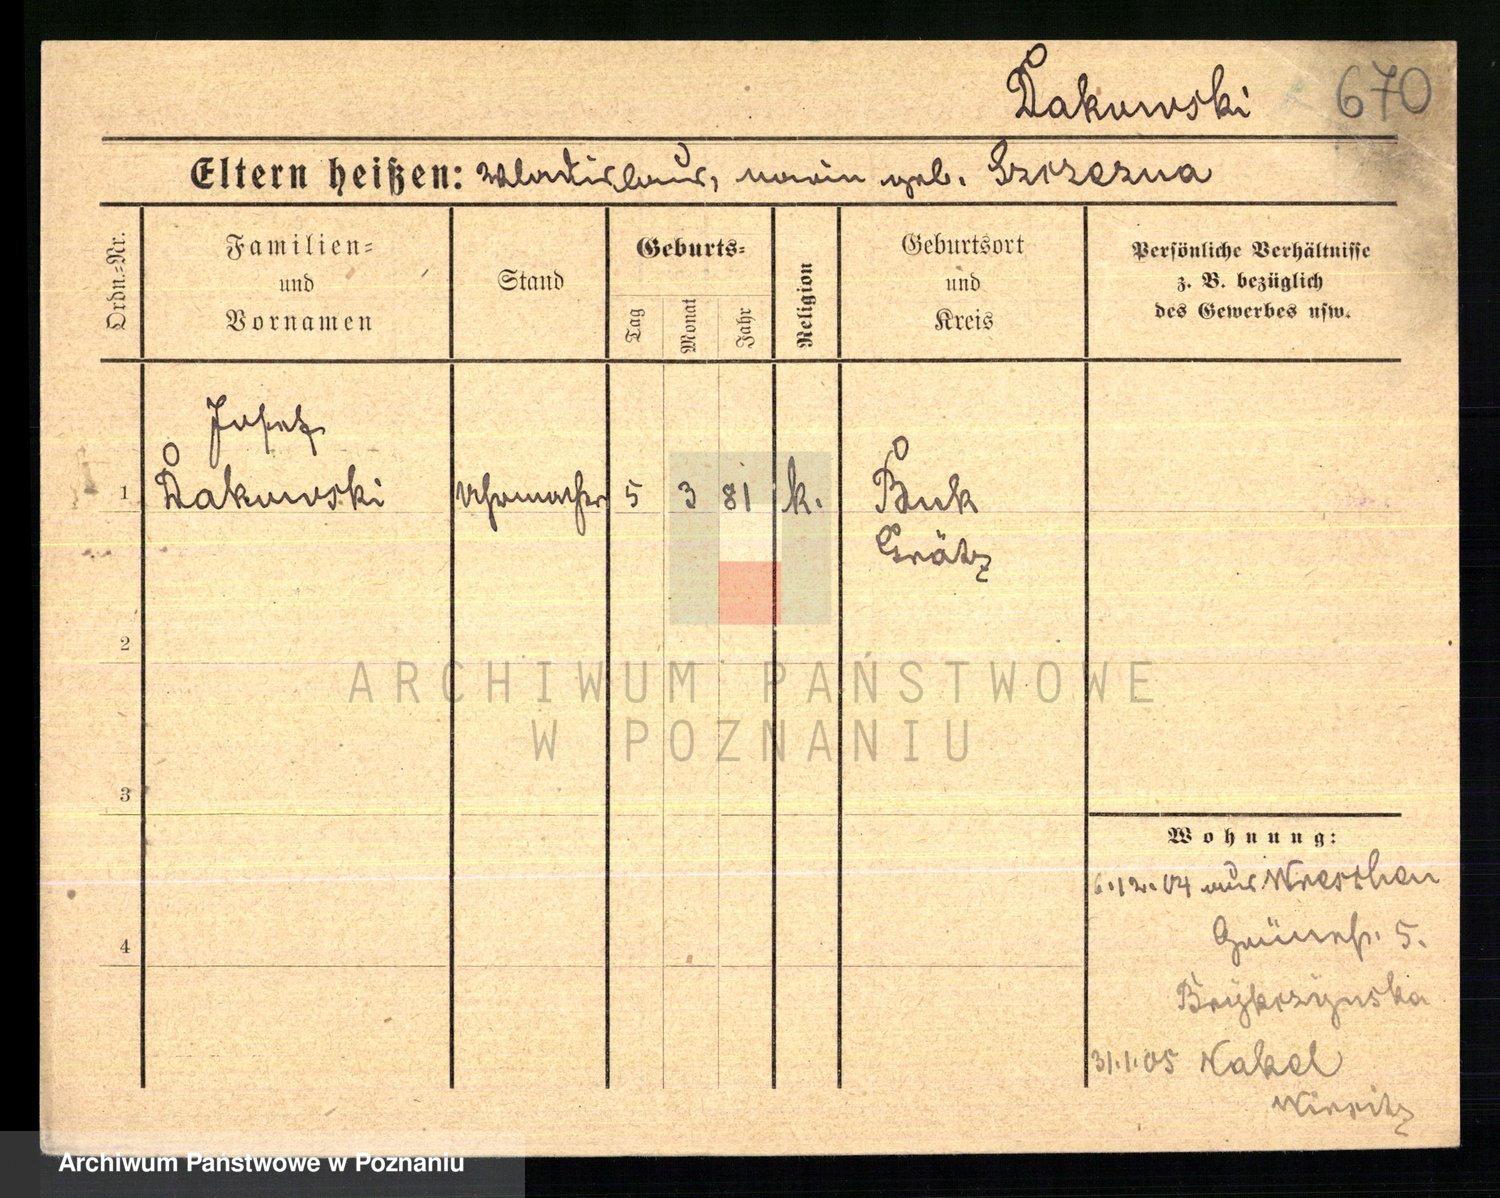 Dakowski 670
Eltern heißen: Wladislaus, Marie geb. Szczezna
Ordn.=Nr.
Familien=
und
Vornamen
Stand
Geburts=
Tag
Monat
Jahr
Religion
Geburtsort
und
Kreis
Persönliche Verhältnisse
z. B. bezüglich
des Gewerbes usw.
Josef
1 Dakowski Uhrmacher 5 3 81 k. Buk
Grätz
2
3
4
Wohnung:
6.12.04 aus Wreschen
Grünestr. 5.
31.1.05 Nakel
Wirsitz
ARCHIWUM PAŃSTWOWE
W POZNANIU
Archiwum Państwowe w Poznaniu